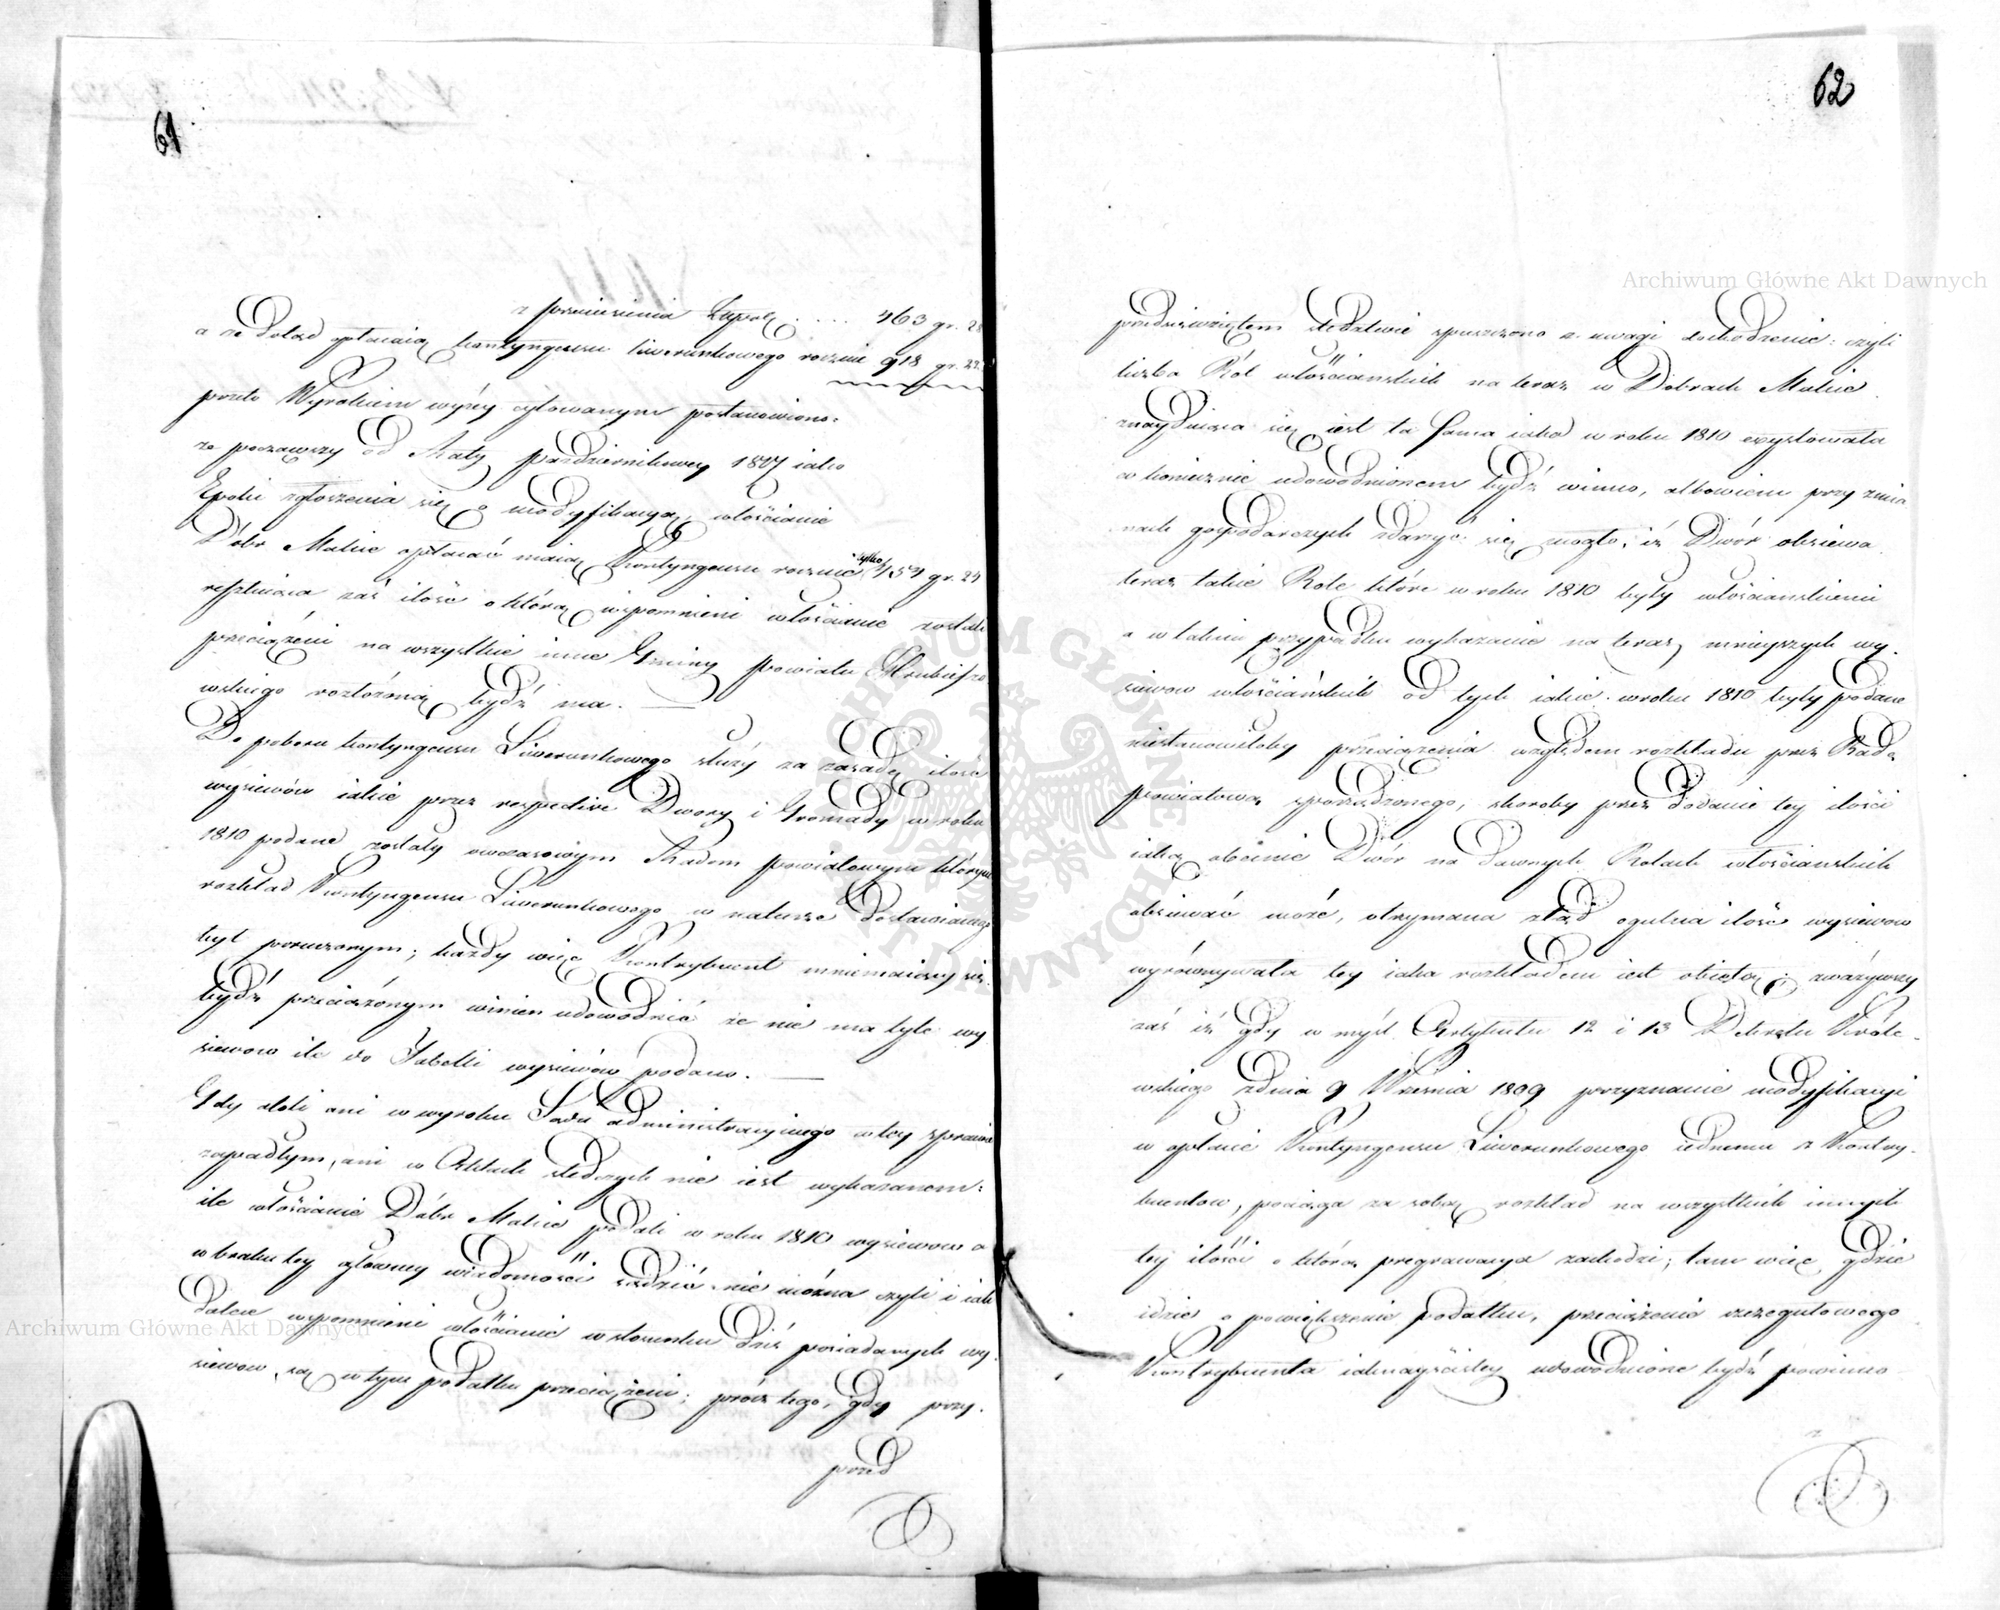 61
z przeniesienia Złpol. .... 463 gr. 28
a że dotąd opłacają kontyngensu liwerunkowego rocznie 918 gr. 22
przeto Wyrokiem wyżey cytowanym postanowiono:
że począwszy od Raty Pazdziernikowey 1817 iako
Epoki zgłoszenia się o modyfikacyą, włościanie
Dóbr Malice opłacać maią Kontyngensu rocznie tylko gr. 24
resztuiąca zaś ilość o którą wspomnieni włościanie zostali
przeciążeni na wszystkie inne Gminy Powiatu Hrubieszo
wskiego rozłożoną bydź ma. —
Do poboru kontyngensu Liwerunkowego służy za zasadę ilość
wysiewów iakie przez respective Dwory i Gromady w roku
1810 podane zostały owczasowym Radom powiatowym którym
rozkład Kontyngensu Liwerunkowego w naturze dostawianego
był poruczonym; każdy więc Kontrybuent mniemaiący się
bydź przeciążonym winien udowodnić że nie ma tyle wy
siewow ile do Tabelli wysiewów podano. —
Gdy atoli ani w wyroku Sądu administracyinego w tey sprawie
zapadłym, ani w Aktach śledczych nie iest wykazanem:
ile włościanie Dóbr Malice podali w roku 1810 wysiewow a
w braku tey główney wiadomości sądzić nie można czyli i iak
dalece wspomnieni włościanie w stosunku dziś posiadanych wy
siewow, są w tym podatku przeciążeni; prócz tego, gdy przy.
przed
62
przedsięwziętem śledztwie spuszczono z uwagi dochodzenie: czyli
liczba Ról włościanskich na teraz w Dobrach Malice
znayduiąca się iest ta sama iaka w roku 1810 exystowała
co koniecznie udowodnionem bydź winno, albowiem przy zmia
nach gospodarczych zdarzyć się mogło, iż Dwór obsiewa
teraz takie Role które w roku 1810 były włościanskiemi
a w takim przypadku wykazanie na teraz mnieyszych wy-
siewow włościańskich od tych iakie w roku 1810 były podane
niestanowiłoby przeciążenia względem rozkładu przez Radę
powiatową sporządzonego, skoroby przez dodanie tey ilości
iaką obecnie Dwór na dawnych Rolach włościanskich
obsiewać może, otrzymana ztąd ogulna ilość wysiewow
wyrównywała tey iaka rozkładem iest obiętą; zważywszy
zaś iż gdy w myśl Artykułu 12 i 13 Dekretu Króle-
wskiego zdnia 9 Wrzesnia 1809 przyznanie modyfikacyi
w opłacie Kontyngensu Liwerunkowego iednemu z Kontry-
buentow, pociąga za sobą rozkład na wszystkich innych
tey ilości o którą pregrawacya zachodzi; tam więc, gdzie
idzie o powiększenie podatku, przeciążenie szczegułowego
Kontrybuenta iaknayściśley udowodnione bydź powinno
Archiwum Główne Akt Dawnych
Archiwum Główne Akt Dawnych
ARCHIWUM GŁÓWNE AKT DAWNYCH